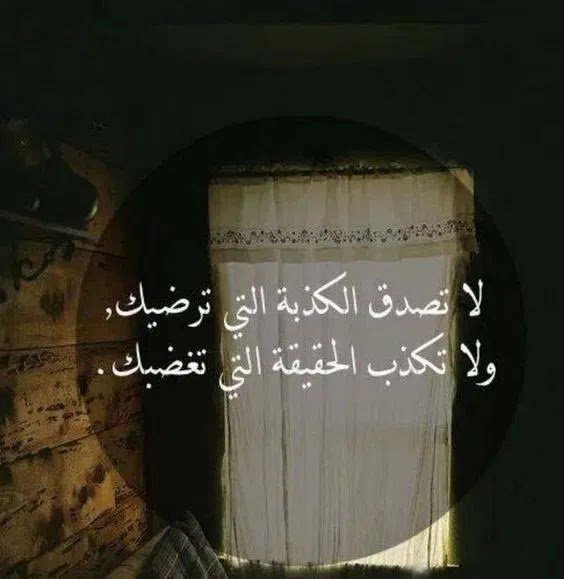 لا تصدق الكذبة التي ترضيك,
ولا تكذب الحقيقة التي تغضبك.